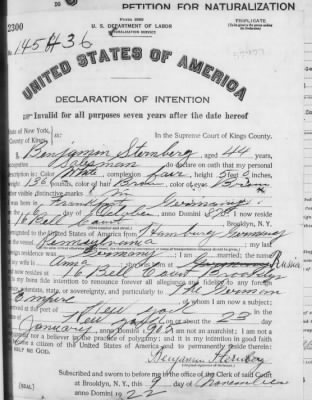 PETITION FOR NATURALIZATION
2300
Form 2202
TRIPLICATE
U. S. DEPARTMENT OF LABOR
NATURALIZATION SERVICE
No 145436
UNITED STATES OF AMERICA
DECLARATION OF INTENTION
Invalid for all purposes seven years after the date hereof
State of New York,
County of Kings,
ss:
In the Supreme Court of Kings County.
Benjamin Sternberg, aged 44 years,
occupation Salesman, do declare on oath that my personal
description is: Color White, complexion fair, height 5 feet inches,
weight 136 pounds, color of hair Brown, color of eyes Brown
other visible distinctive marks
born in Frankfort Germany
on the day of October, anno Domini 1878; I now reside
at 16 Bell Court, Brooklyn, N. Y.
emigrated to the United States of America from Hamburg Germany
on the vessel Pennsylvania; my last
foreign residence was Germany; I am married; the name
of my wife is Anna Russia
and now resides at 16 Bell Court Brooklyn
It is my bona fide intention to renounce forever all allegiance and fidelity to any foreign
prince, potentate, state, or sovereignty, and particularly to The German
Empire, of whom I am now a subject;
I arrived at the port of New York
New York, on or about the 23 day
January, anno Domini 1903; I am not an anarchist; I am not a
polygamist nor a believer in the practice of polygamy; and it is my intention in good faith
to become a citizen of the United States of America and to permanently reside therein:
HELP ME GOD.
Benjamin Sternberg
Subscribed and sworn to before me in the office of the Clerk of said Court
at Brooklyn, N. Y., this 9 day of November
[SEAL]
anno Domini 1922